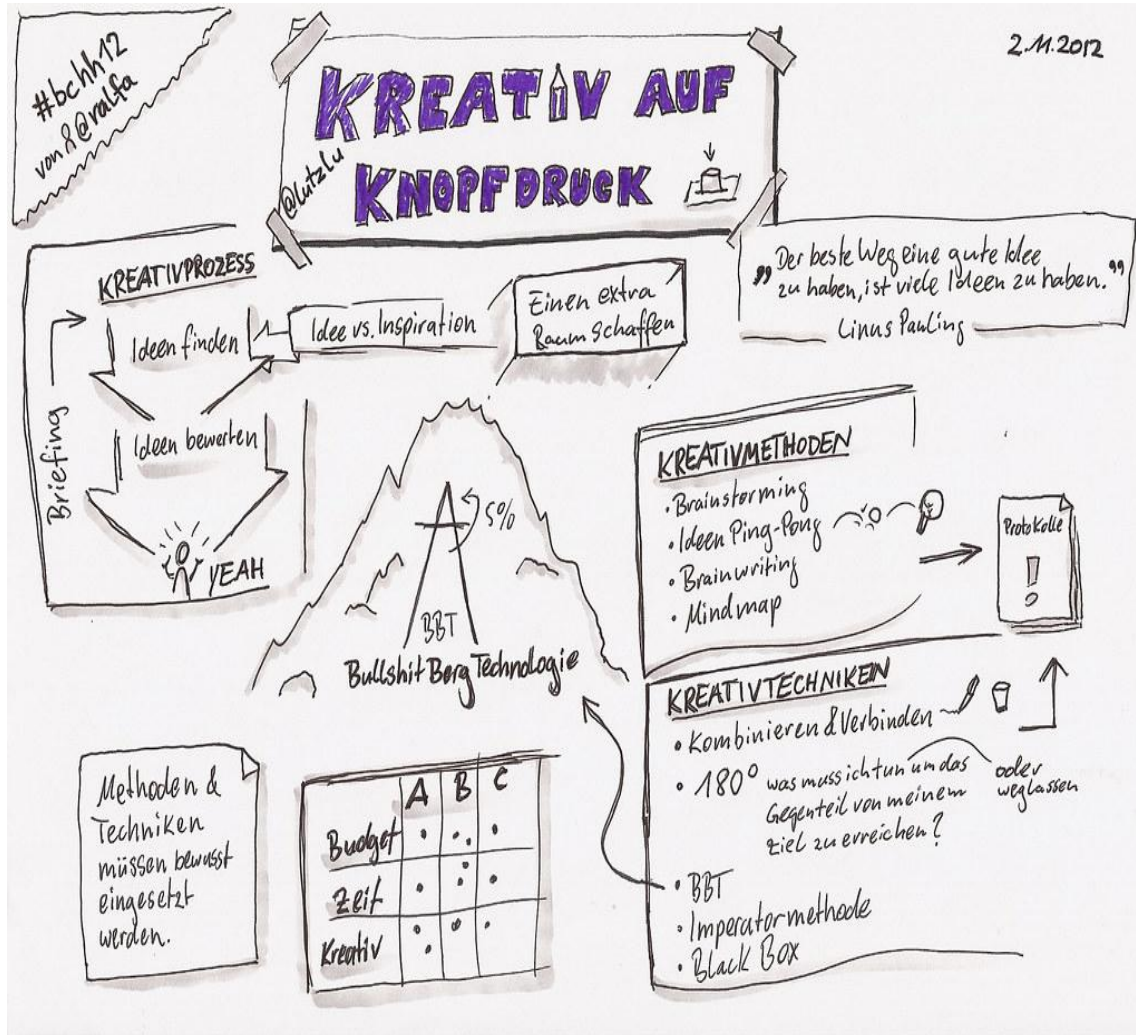 #bchh12
von @ralfa
2.11.2012
KREATIV AUF
KNOPFDRUCK
@lutzlu
KREATIVPROZESS
Ideen finden
Idee vs. Inspiration
Einen extra
Raum schaffen
„Der beste Weg eine gute Idee
zu haben, ist viele Ideen zu haben.“
Linus Pauling
Briefing
Ideen bewerten
YEAH
5%
BBT
Bullshit Berg Technologie
KREATIVMETHODEN
• Brainstorming
• Ideen Ping-Pong
• Brainwriting
• Mindmap
Protokolle
!
KREATIVTECHNIKEN
• Kombinieren & Verbinden
• 180° was muss ich tun um das
Gegenteil von meinem
Ziel zu erreichen?
oder
weglassen
• BBT
• Imperatormethode
• Black Box
Methoden &
Techniken
müssen bewusst
eingesetzt
werden.
A B C
Budget
Zeit
Kreativ